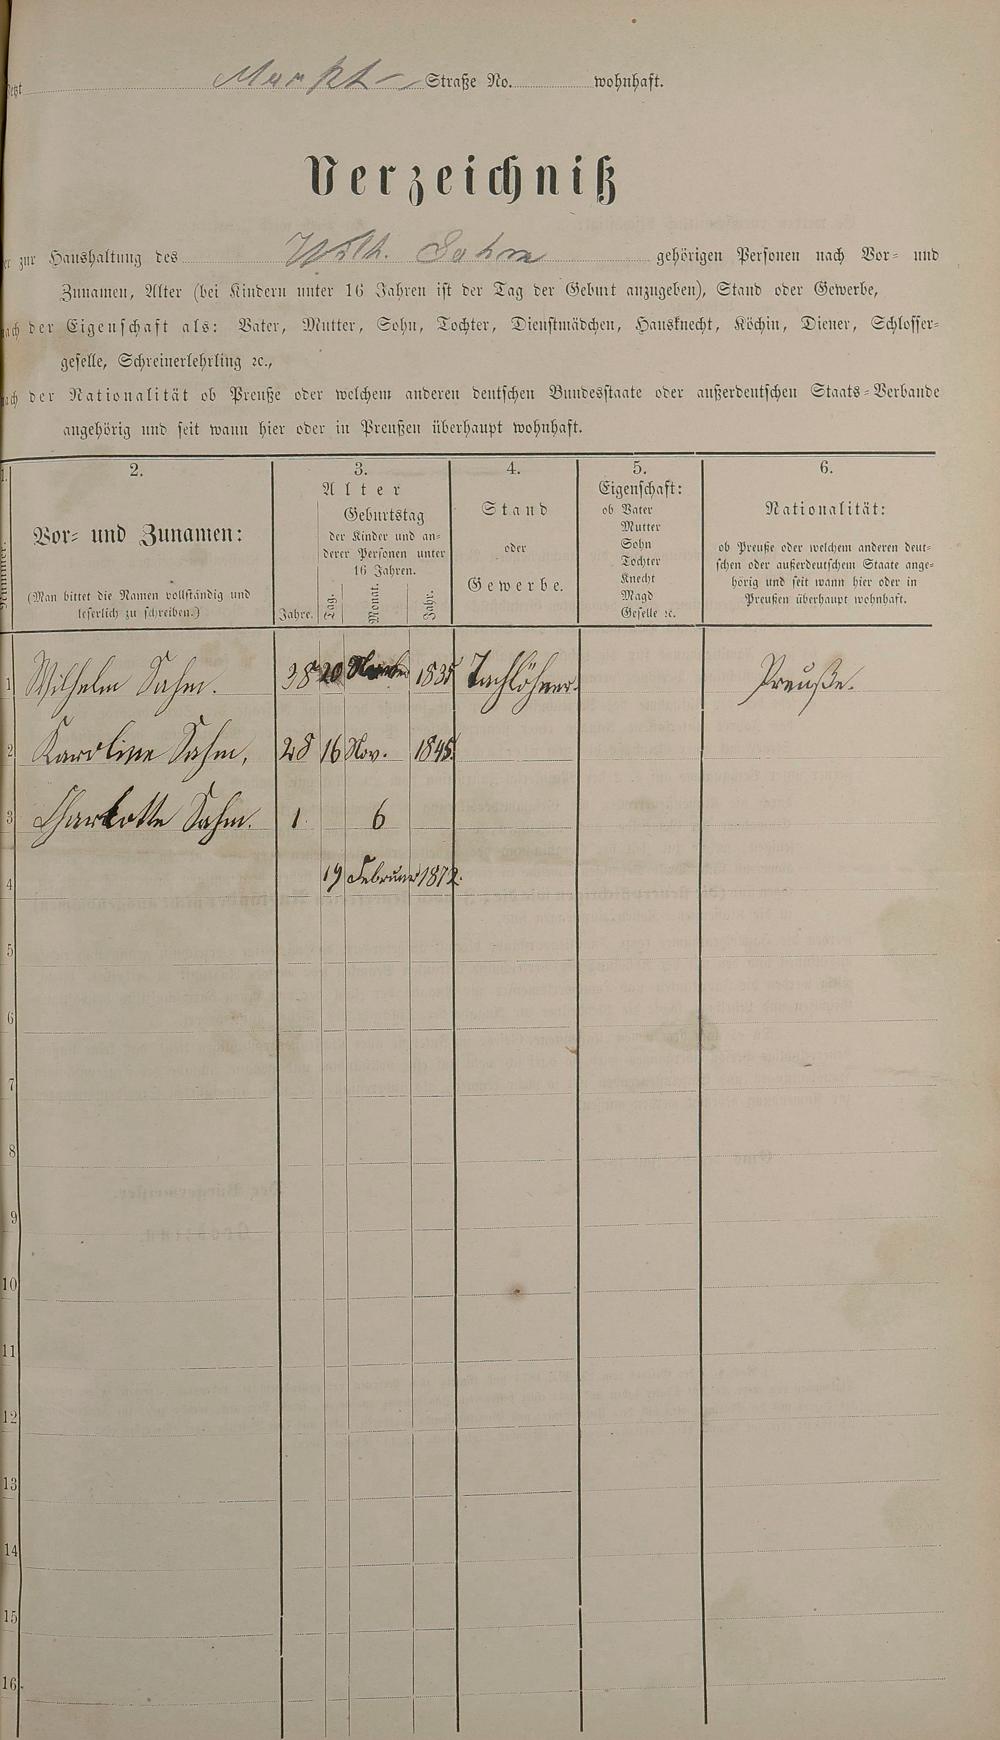 Markt- Straße No. wohnhaft.
Verzeichniß
zur Haushaltung des Wilh. Sahm gehörigen Personen nach Vor- und
Zunamen, Alter (bei Kindern unter 16 Jahren ist der Tag der Geburt anzugeben), Stand oder Gewerbe,
nach der Eigenschaft als: Vater, Mutter, Sohn, Tochter, Dienstmädchen, Hausknecht, Köchin, Diener, Schlosser-
geselle, Schreinerlehrling ꝛc.,
nach der Nationalität ob Preuße oder welchem anderen deutschen Bundesstaate oder außerdeutschen Staats-Verbande
angehörig und seit wann hier oder in Preußen überhaupt wohnhaft.
1. 2. 3. 4. 5. 6.
Nummer.
Vor- und Zunamen:
(Man bittet die Namen vollständig und
leserlich zu schreiben.)
Alter
Geburtstag
der Kinder und an-
derer Personen unter
16 Jahren.
Jahre. Tag. Monat. Jahr.
Stand
oder
Gewerbe.
Eigenschaft:
ob Vater
Mutter
Sohn
Tochter
Knecht
Magd
Geselle ꝛc.
Nationalität:
ob Preuße oder welchem anderen deut-
schen oder außerdeutschem Staate ange-
hörig und seit wann hier oder in
Preußen überhaupt wohnhaft.
1 Wilhelm Sahm. 38 20 1835 Tachlöhner. Preuße.
2 Karoline Sahm, 28 16 Nov. 1845.
3 Charlotte Sahm. 1 6
4 19 Februar 1872.
5
6
7
8
9
10
11
12
13
14
15
16.